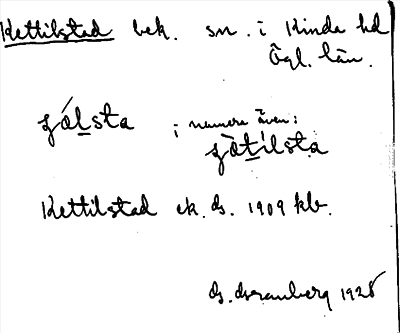 Kettilstad bek. sn. i Kinda hd
Ögl. län.
sålsta ; numera även:
såtilsta
Kettilstad ek. ds. 1909 klr.
ds. 1928